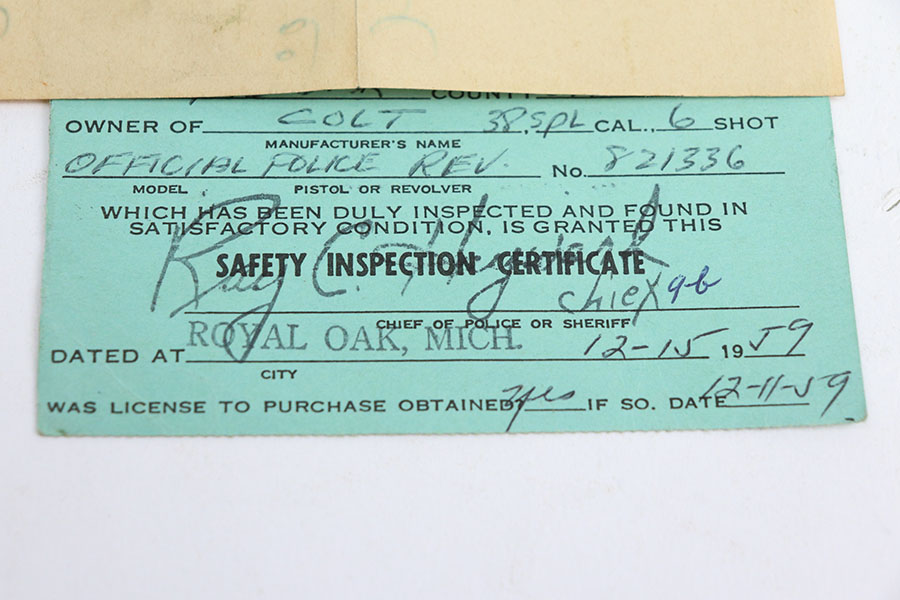 COUNTY
OWNER OF COLT 38,SPL CAL., 6 SHOT
MANUFACTURER'S NAME
OFFICIAL POLICE REV. No. 821336
MODEL PISTOL OR REVOLVER
WHICH HAS BEEN DULY INSPECTED AND FOUND IN
SATISFACTORY CONDITION, IS GRANTED THIS
SAFETY INSPECTION CERTIFICATE
Ray C.
chief
CHIEF OF POLICE OR SHERIFF
DATED AT ROYAL OAK, MICH. 12-15 1959
CITY
WAS LICENSE TO PURCHASE OBTAINED? yes IF SO. DATE 12-11-59